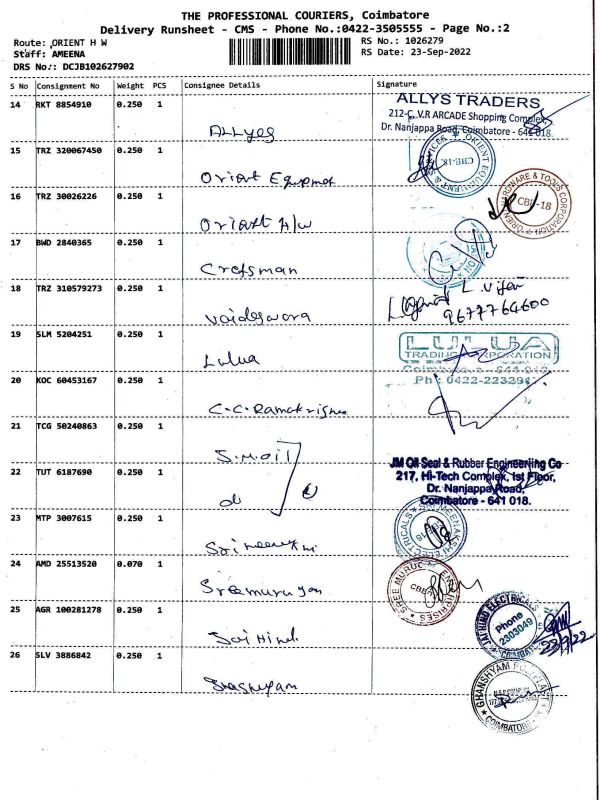 THE PROFESSIONAL COURIERS, Coimbatore
Delivery Runsheet - CMS - Phone No.:0422-3505555 - Page No.:2
Route: ORIENT H W
RS No.: 1026279
Staff: AMEENA
RS Date: 23-Sep-2022
DRS No.: DCJB102627902
S No Consignment No Weight PCS Consignee Details Signature
14 RKT 8854910 0.250 1
ALLyes
ALLYS TRADERS
212-C, V.R ARCADE Shopping Complex
Dr. Nanjappa Road, Coimbatore - 641 018.
15 TRZ 320067450 0.250 1
Orient Equpmet
ORIENT EQUIPMENT & SERVICES
CBE-18.
16 TRZ 30026226 0.250 1
Orient H/W
HARDWARE & TOOLS CORPORATION
CBE-18
17 BWD 2840365 0.250 1
Crafsman
18 TRZ 310579273 0.250 1
Vaideswara
9677764600
19 SLM 5204251 0.250 1
Lulua
LULUA
TRADING CORPORATION
20 KOC 60453167 0.250 1
C.C. Ramakrishna
21 TCG 50240863 0.250 1
S.M.oil
22 TUT 6187690 0.250 1
do
JM Oil Seal & Rubber Engineering Co
217, Hi-Tech Complex, Ist Floor,
Dr. Nanjappa Road,
Coimbatore - 641 018.
23 MTP 3007615 0.250 1
SRI MEENAKSHI ELECTRICALS
24 AMD 25513520 0.070 1
Sreemurugan
SREE MURUGAN ENTERPRISES
25 AGR 100281278 0.250 1
Jai Hind
JAI HIND ELECTRICALS
Phone
2303049
23/9/22
26 SLV 3886842 0.250 1
GHANSHYAM
COIMBATORE